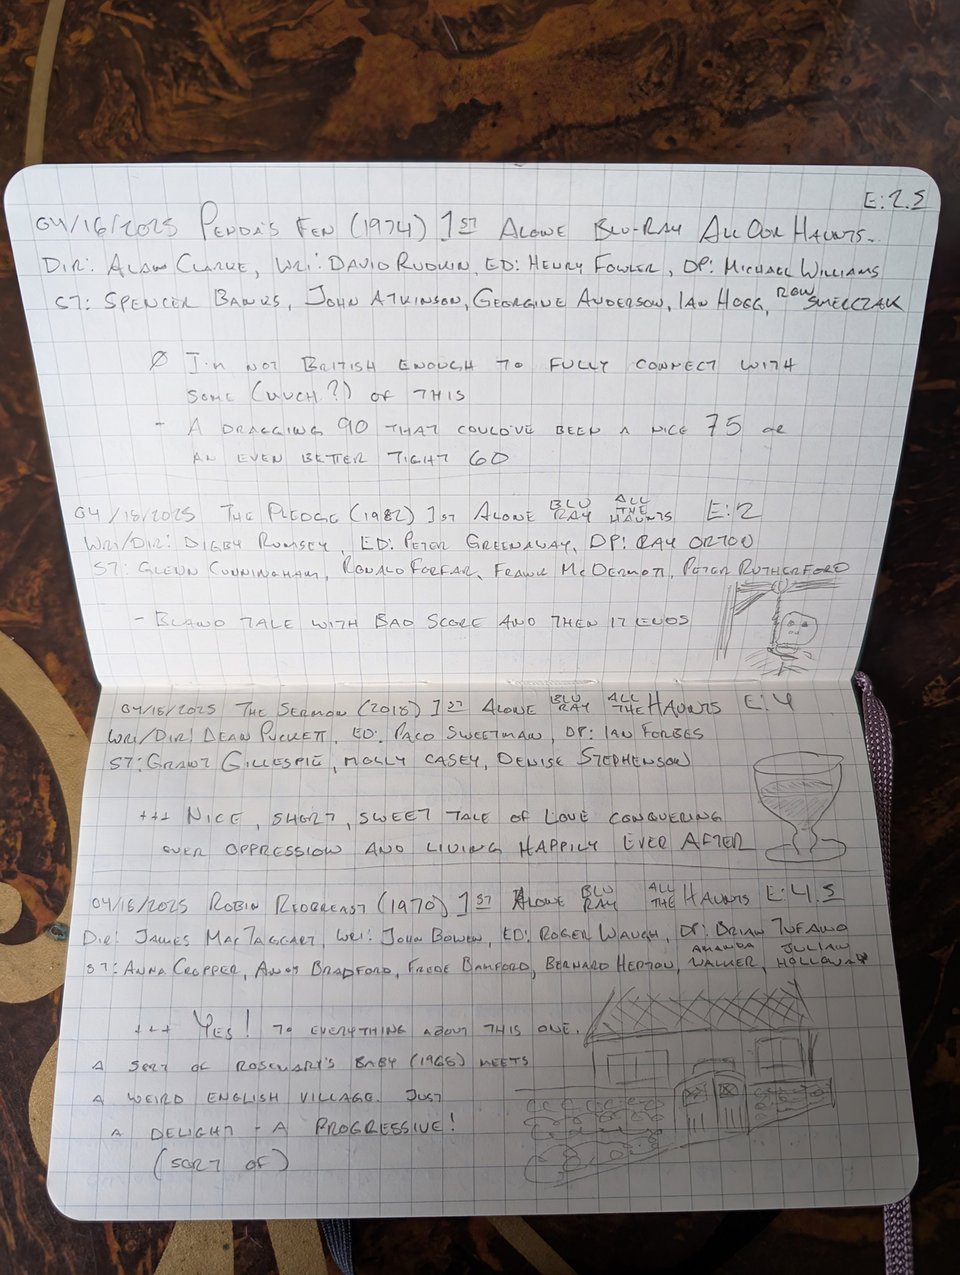 E: 2.5
04/16/2025 PENDA'S FEN (1974) 1ST ALONE BLU-RAY ALL OUR HAUNTS..
DIR: ALAN CLARKE, WRI: DAVID RUDKIN, ED: HENRY FOWLER, DP: MICHAEL WILLIAMS
ST: SPENCER BANKS, JOHN ATKINSON, GEORGINE ANDERSON, IAN HOGG, RON SMERCZAK
Ø I'M NOT BRITISH ENOUGH TO FULLY CONNECT WITH
SOME (MUCH?) OF THIS
- A DRAGGING 90 THAT COULD'VE BEEN A NICE 75 OR
AN EVEN BETTER TIGHT 60
04/18/2025 THE PLEDGE (1982) 1ST ALONE BLU RAY ALL THE HAUNTS E: 2
WRI/DIR: DIGBY RUMSEY, ED: PETER GREENAWAY, DP: RAY ORTON
ST: GLENN CUNNINGHAM, RONALD FORFAR, FRANK MCDERMOTT, PETER RUTHERFORD
- BLAND TALE WITH BAD SCORE AND THEN IT ENDS
04/18/2025 THE SERMON (2018) 1ST ALONE BLU RAY ALL THE HAUNTS E: 4
WRI/DIR: DEAN PUCKETT, ED: PACO SWEETMAN, DP: IAN FORBES
ST: GRANT GILLESPIE, MOLLY CASEY, DENISE STEPHENSON
+++ NICE, SHORT, SWEET TALE OF LOVE CONQUERING
OVER OPPRESSION AND LIVING HAPPILY EVER AFTER
04/18/2025 ROBIN REDBREAST (1970) 1ST ALONE BLU RAY ALL THE HAUNTS E: 4.5
DIR: JAMES MACTAGGART, WRI: JOHN BOWEN, ED: ROGER WAUGH, DP: BRIAN TUFANO
ST: ANNA CROPPER, AMOS BRADFORD, FREDA BAMFORD, BERNARD HEPTON, AMANDA WALKER, JULIAN HOLLOWAY
+++ YES! TO EVERYTHING ABOUT THIS ONE.
A SORT OF ROSEMARY'S BABY (1968) MEETS
A WEIRD ENGLISH VILLAGE. JUST
A DELIGHT - A PROGRESSIVE!
(SORT OF)